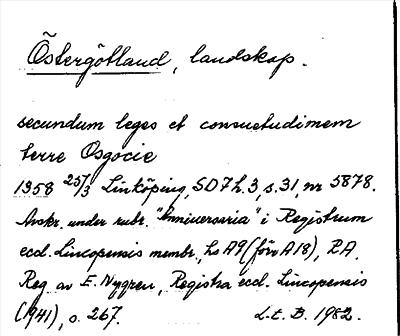 Östergötland, landskap.
secundum leges et consuetudimem
terre Osgocie
1358 25/3 Linköping, SD7h.3, s.31, nr 5878.
Avskr. under rubr. "Anniuersaria" i Registrum
eccl. Lincopensis membr., hs A9 (förr A18), RA.
Reg. av E. Nygren, Registra eccl. Lincopensis
(1941), s. 267. L.t. B. 1982.